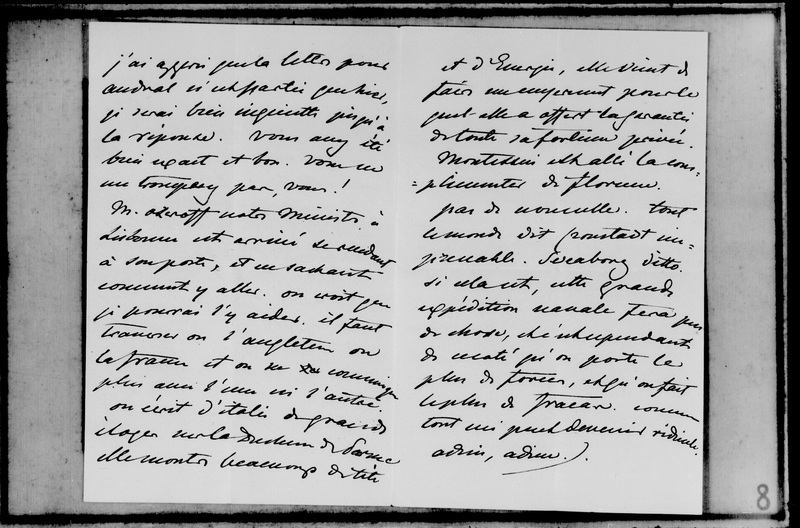 j'ai appris que la lettre pour
Andral n'est partie qu'hier,
je serai bien inquiette jusqu'à
la réponse. Vous avez été
bien exact et bon. Vous ne
me trompez pas, vous !
M. Ozeroff notre Ministre à
Lisbonne est arrivé se rendant
à son poste, et ne sachant
comment y aller. on croit que
je pourrai l'y aider. il faut
traverser ou l'angleterre ou
la france et on ne communique
plus avec l'une ni l'autre.
on écrit d'italie de grands
éloges sur la Duchesse de Parme
elle montre beaucoup de tête
et d'Energie, elle vient de
faire un emprunt pour le
quel elle a offert la garantie
de toute sa fortune privée.
Montebello est allé la com=
=plimenter de florence.
pas de nouvelle. tout
le monde dit Cronstadt im=
prenable. Sveaborg ditto.
si cela est, cette grande
expédition navale fera peu
de chose, et c'est cependant
de ce côté qu'on porte le
plus de forces, et qu'on fait
le plus de fracas. comme
tout ceci peut devenir ridicule.
adieu, adieu.
8